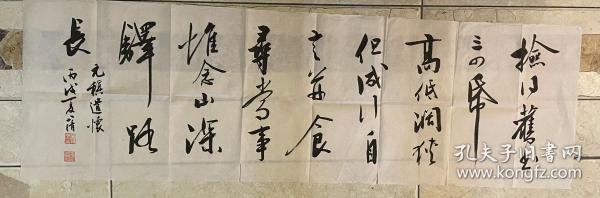 撿得舊書
三四帋
高低濶狹
但成行自
言并食
尋常事
惟念山深
驛路
長
元稹遣懷
丙戌夏
孔夫子旧书网
www.kongfz.com